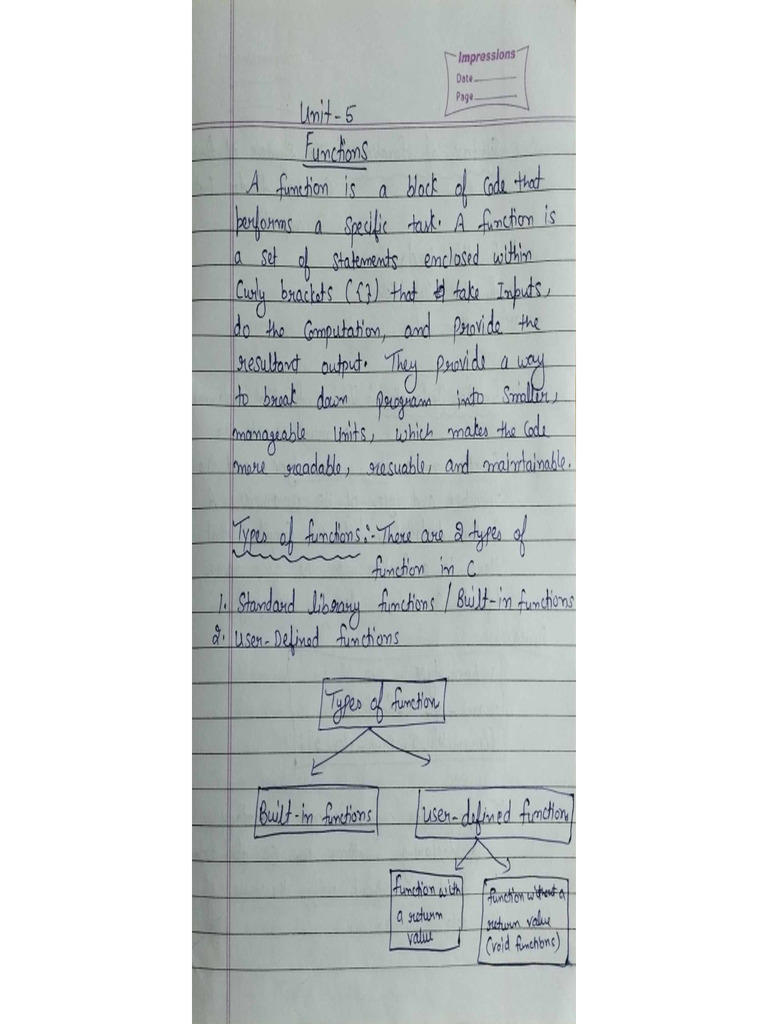 Impressions
Date
Page
Unit-5
Functions
A function is a block of code that
performs a specific task. A function is
a set of statements enclosed within
Curly brackets ({}) that take Inputs,
do the Computation, and provide the
resultant output. They provide a way
to break down program into smaller,
manageable Units, which makes the Code
more readable, resuable, and maintainable.
Types of functions:- There are 2 types of
function in C
1. Standard library functions / Built-in functions
2. User-Defined functions
Types of function
Built-in functions
User-defined function
function with
a return
value
function without a
return value
(void functions)